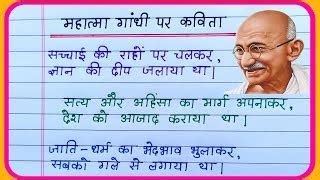 महात्मा गांधी पर कविता
सच्चाई की राहों पर चलकर,
ज्ञान की दीप जलाया था।
सत्य और अहिंसा का मार्ग अपनाकर,
देश को आजाद कराया था।
जाति-धर्म का भेदभाव भुलाकर,
सबको गले से लगाया था।